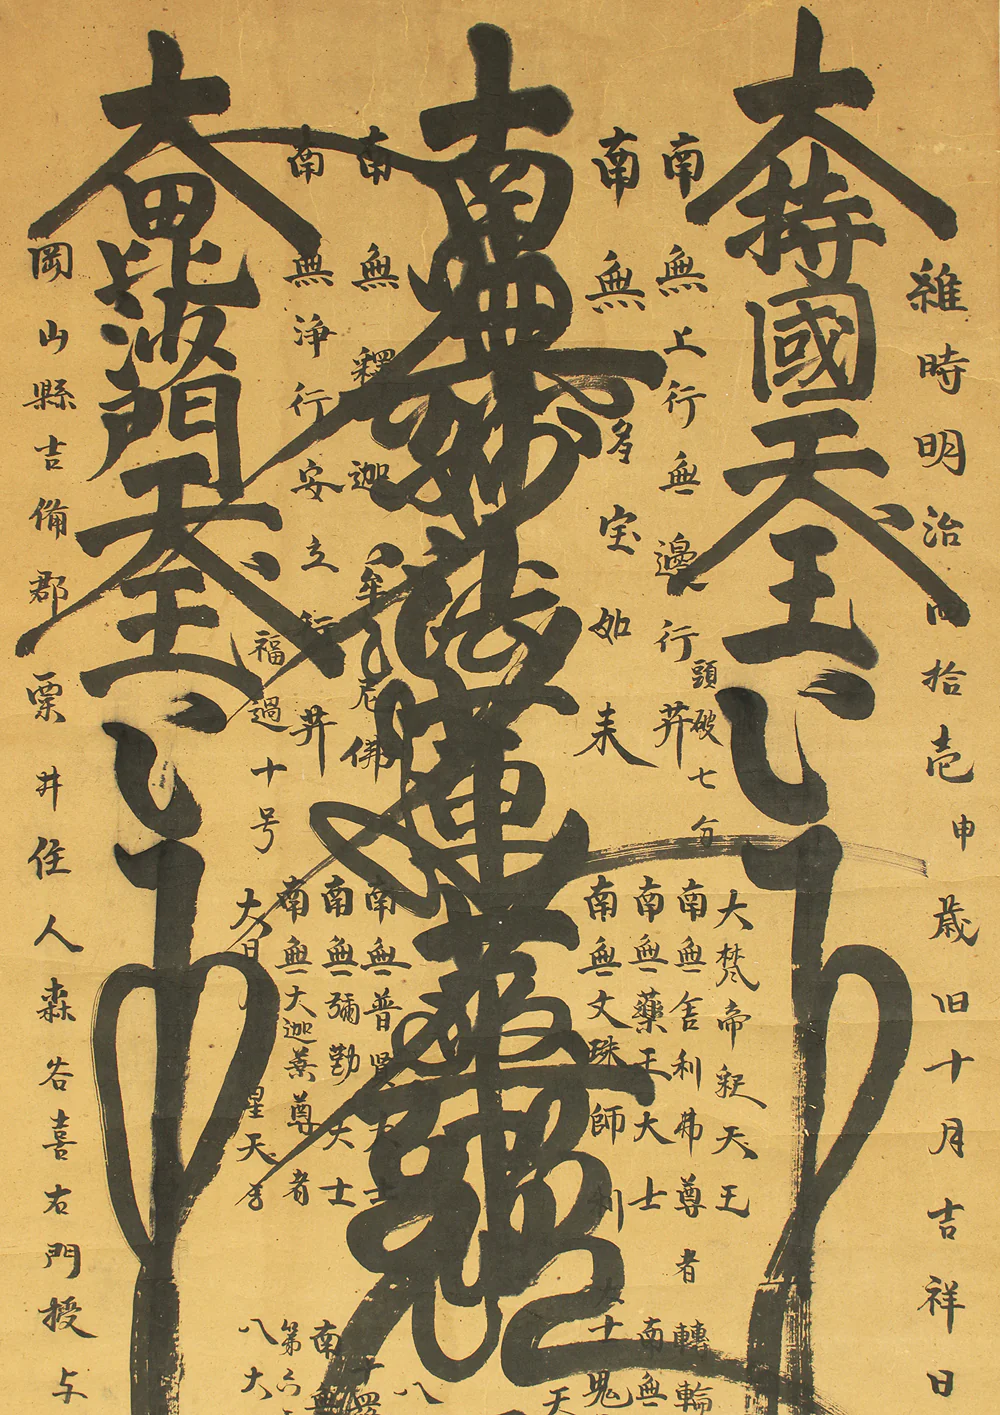 維時明治四拾壱申歳旧十月吉祥日
大持國天王
頭破七分
大梵帝釈天王
南無上行無邊行菩
南無舎利弗尊者
轉輪
南無多宝如来
南無藥王大士
南無
南無文珠師利
十
鬼
天
南無妙法蓮華
南無釋迦牟尼佛
南無普賢大士
八
十羅
南無浄行安立行菩
南無彌勒大士
南無
南無大迦葉尊者
第六
福過十号
大日月星天
八大
大毘沙門天王
岡山縣吉備郡粟井住人森谷喜右門授与